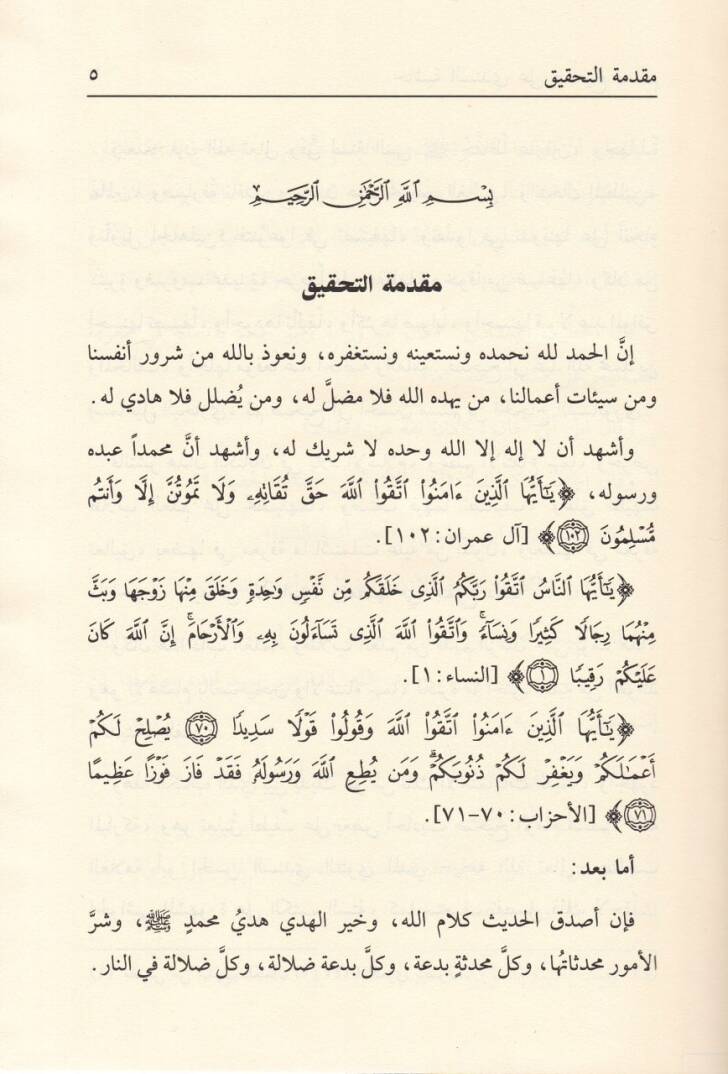 مقدمة التحقيق ٥
بِسْمِ اللَّهِ الرَّحْمَٰنِ الرَّحِيمِ
مقدمة التحقيق
إنَّ الحمد لله نحمده ونستعينه ونستغفره، ونعوذ بالله من شرور أنفسنا
ومن سيئات أعمالنا، من يهده الله فلا مضلَّ له، ومن يُضلل فلا هادي له.
وأشهد أن لا إله إلا الله وحده لا شريك له، وأشهد أنَّ محمداً عبده
ورسوله، ﴿يَٰٓأَيُّهَا ٱلَّذِينَ ءَامَنُوا۟ ٱتَّقُوا۟ ٱللَّهَ حَقَّ تُقَاتِهِۦ وَلَا تَمُوتُنَّ إِلَّا وَأَنتُم
مُّسْلِمُونَ ١٠٢﴾ [آل عمران: ١٠٢].
﴿يَٰٓأَيُّهَا ٱلنَّاسُ ٱتَّقُوا۟ رَبَّكُمُ ٱلَّذِى خَلَقَكُم مِّن نَّفْسٍ وَٰحِدَةٍ وَخَلَقَ مِنْهَا زَوْجَهَا وَبَثَّ
مِنْهُمَا رِجَالًا كَثِيرًا وَنِسَآءً ۚ وَٱتَّقُوا۟ ٱللَّهَ ٱلَّذِى تَسَآءَلُونَ بِهِۦ وَٱلْأَرْحَامَ ۚ إِنَّ ٱللَّهَ كَانَ
عَلَيْكُمْ رَقِيبًا ١﴾ [النساء: ١].
﴿يَٰٓأَيُّهَا ٱلَّذِينَ ءَامَنُوا۟ ٱتَّقُوا۟ ٱللَّهَ وَقُولُوا۟ قَوْلًا سَدِيدًا ٧٠ يُصْلِحْ لَكُمْ
أَعْمَٰلَكُمْ وَيَغْفِرْ لَكُمْ ذُنُوبَكُمْ ۗ وَمَن يُطِعِ ٱللَّهَ وَرَسُولَهُۥ فَقَدْ فَازَ فَوْزًا عَظِيمًا
٧١﴾ [الأحزاب: ٧٠-٧١].
أما بعد:
فإن أصدق الحديث كلام الله، وخير الهدي هديُ محمدٍ ﷺ، وشرَّ
الأمور محدثاتُها، وكلَّ محدثةٍ بدعة، وكلَّ بدعة ضلالة، وكلَّ ضلالة في النار.